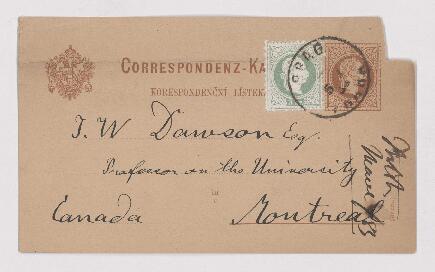 CORRESPONDENZ-KA
KORESPONDENČNÍ LÍSTEK
PRAG
J. W Dawson Esq.
Professor on the University
in
Canada Montreal